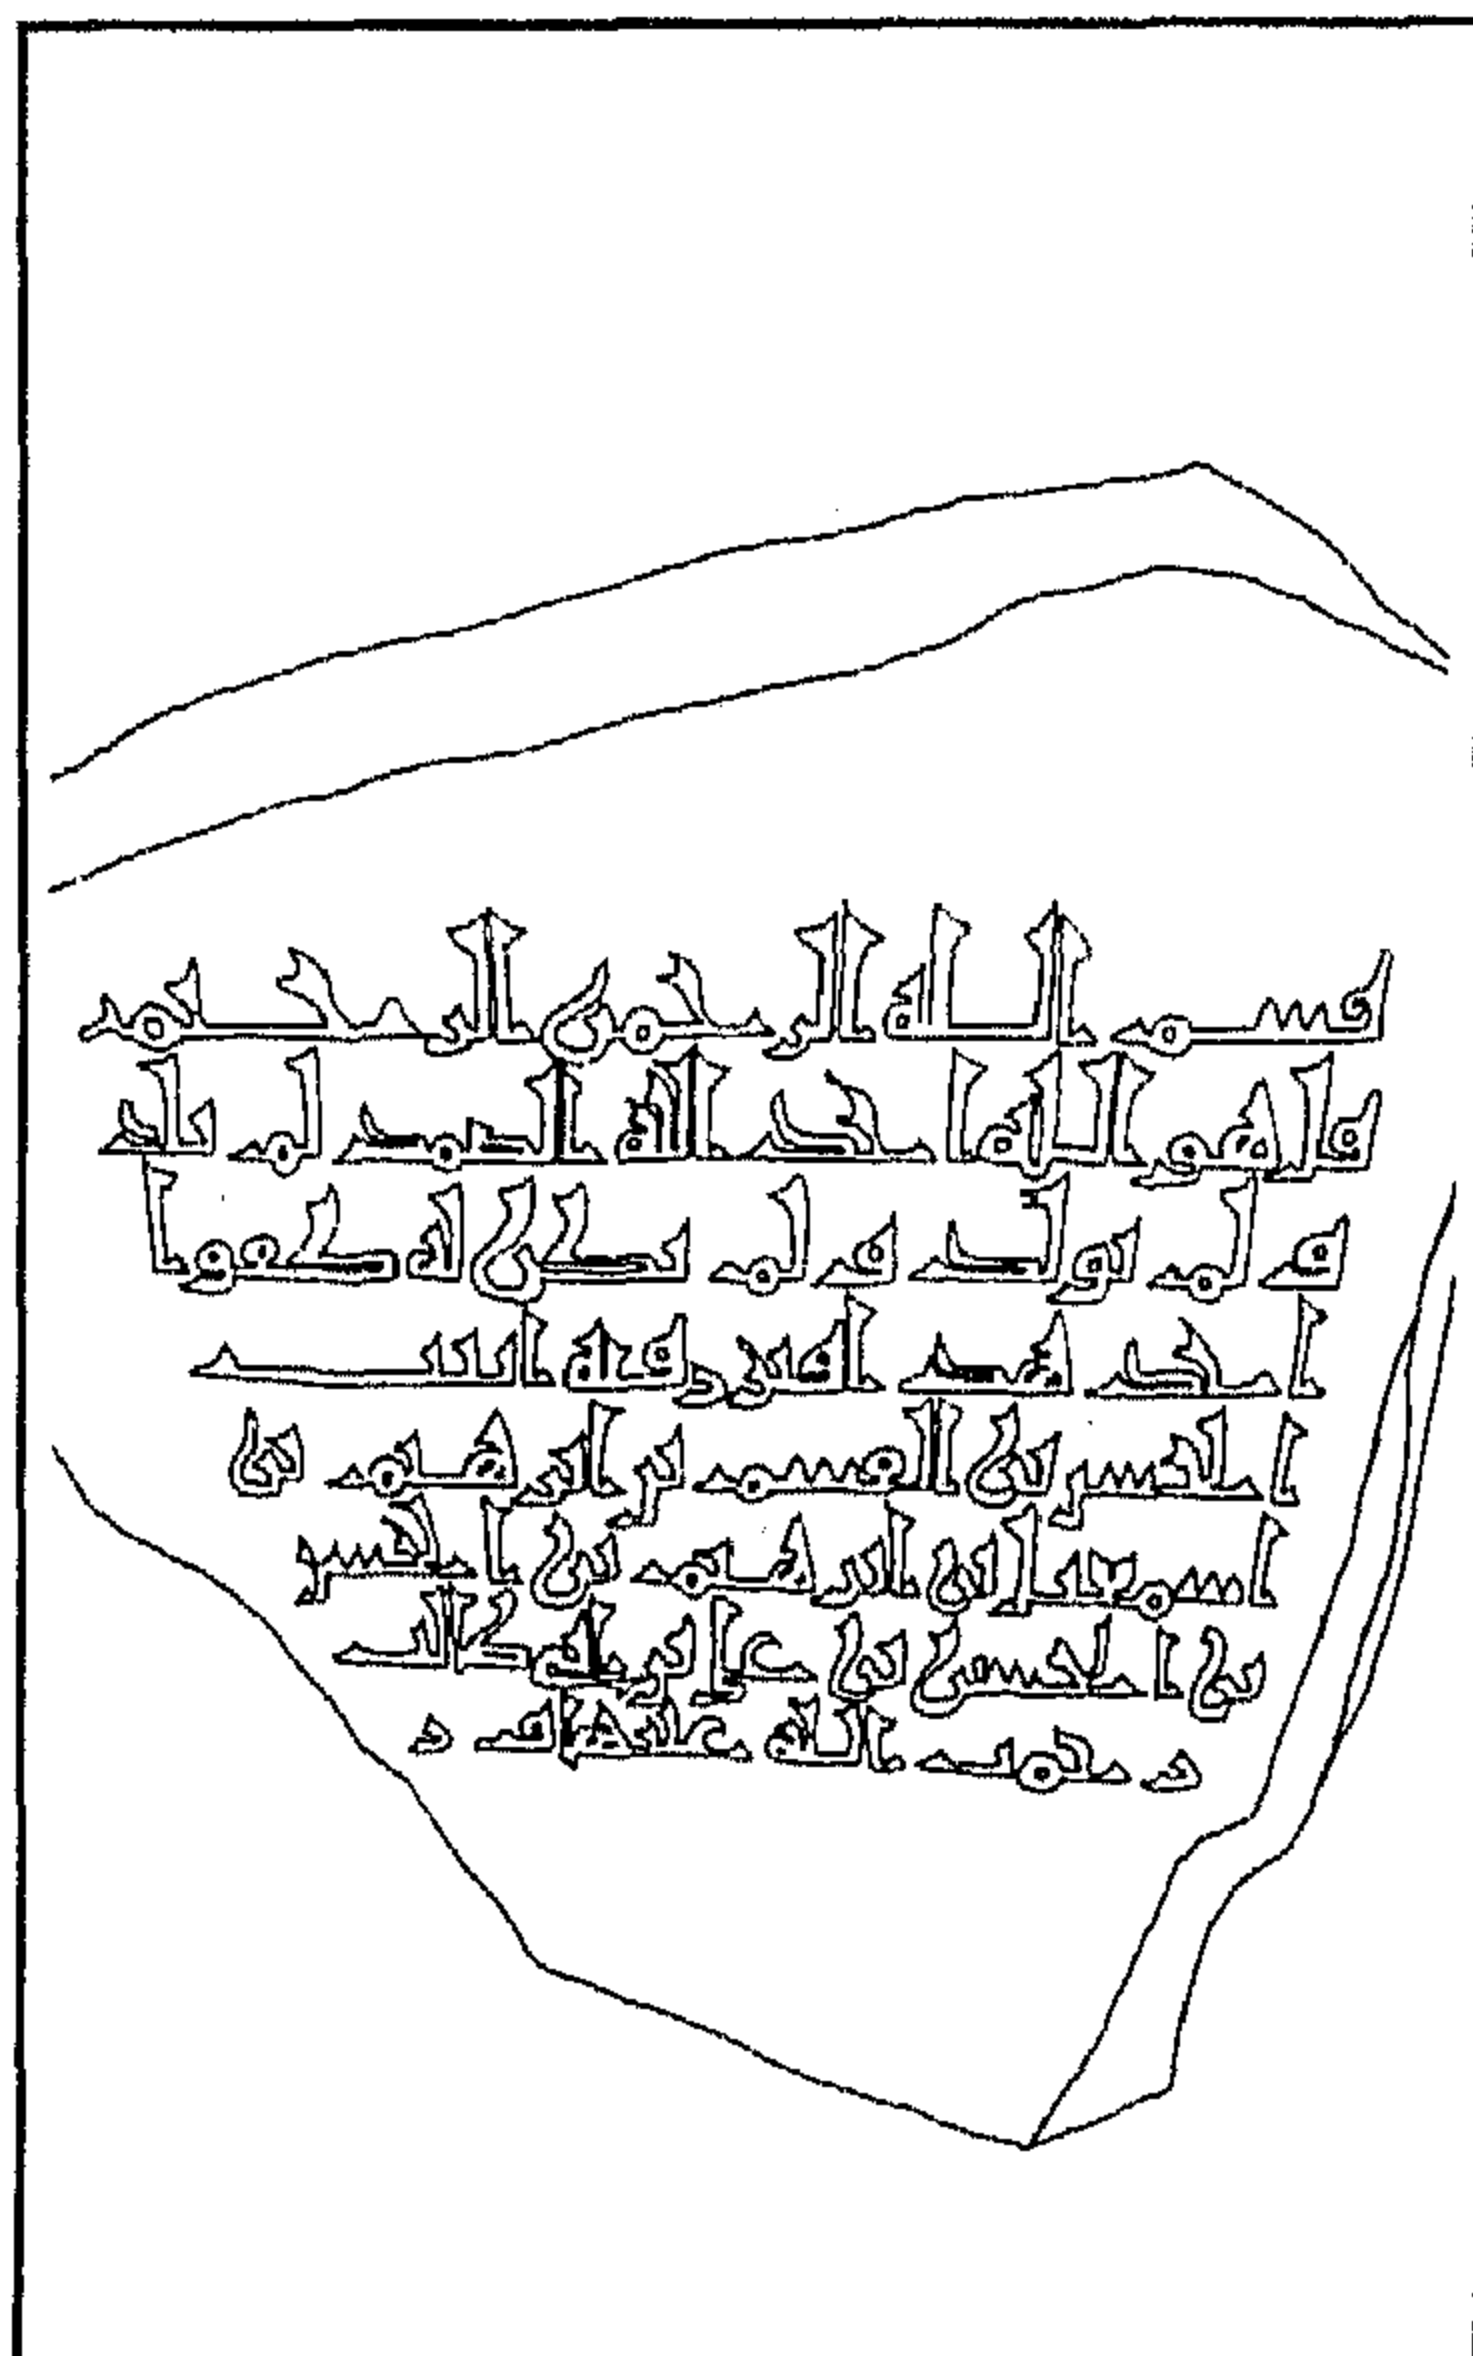 بسم الله الرحمن الرحيم
قل هو الله احد الله الصمد لم يلد
و لم يولد و لم يكن له كفوا
احد هذا قبر رقيه ابنت
الحسن بن القسم بن ابرهيم بن
اسمعيل بن ابرهيم بن الحسن
بن الحسن بن علي بن ابي طالب
رحمت الله عليها